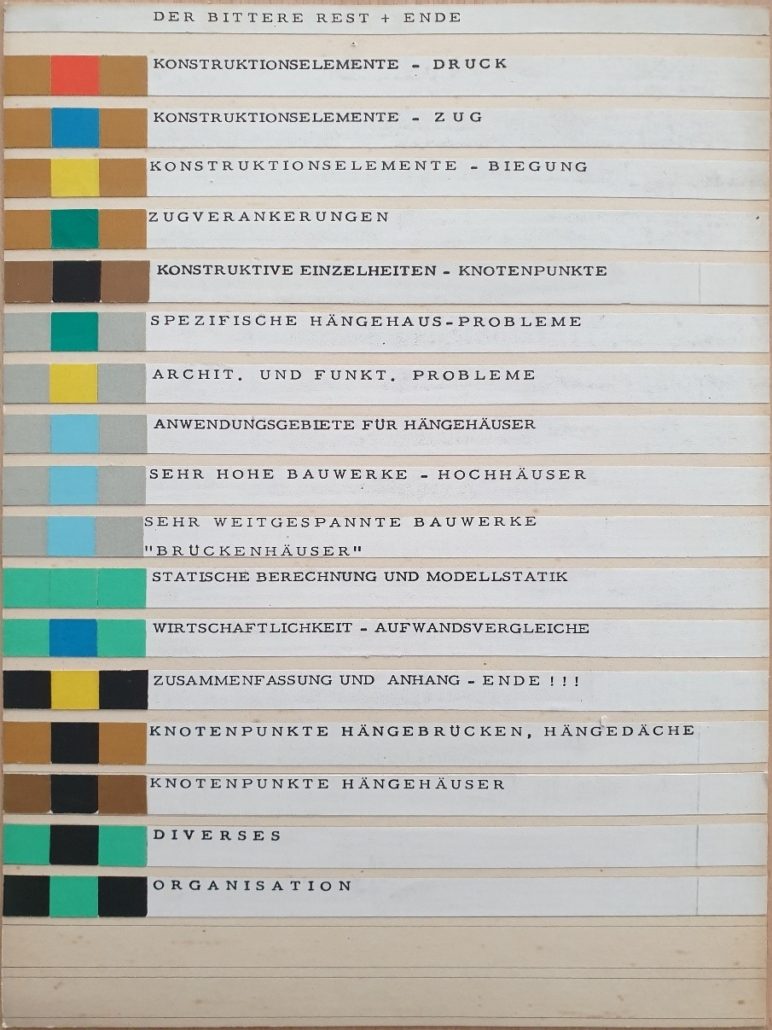 DER BITTERE REST + ENDE
KONSTRUKTIONSELEMENTE - DRUCK
KONSTRUKTIONSELEMENTE - ZUG
KONSTRUKTIONSELEMENTE - BIEGUNG
ZUGVERANKERUNGEN
KONSTRUKTIVE EINZELHEITEN - KNOTENPUNKTE
SPEZIFISCHE HÄNGEHAUS-PROBLEME
ARCHIT. UND FUNKT. PROBLEME
ANWENDUNGSGEBIETE FÜR HÄNGEHÄUSER
SEHR HOHE BAUWERKE - HOCHHÄUSER
SEHR WEITGESPANNTE BAUWERKE
"BRÜCKENHÄUSER"
STATISCHE BERECHNUNG UND MODELLSTATIK
WIRTSCHAFTLICHKEIT - AUFWANDSVERGLEICHE
ZUSAMMENFASSUNG UND ANHANG - ENDE !!!
KNOTENPUNKTE HÄNGEBRÜCKEN, HÄNGEDÄCHE
KNOTENPUNKTE HÄNGEHÄUSER
DIVERSES
ORGANISATION